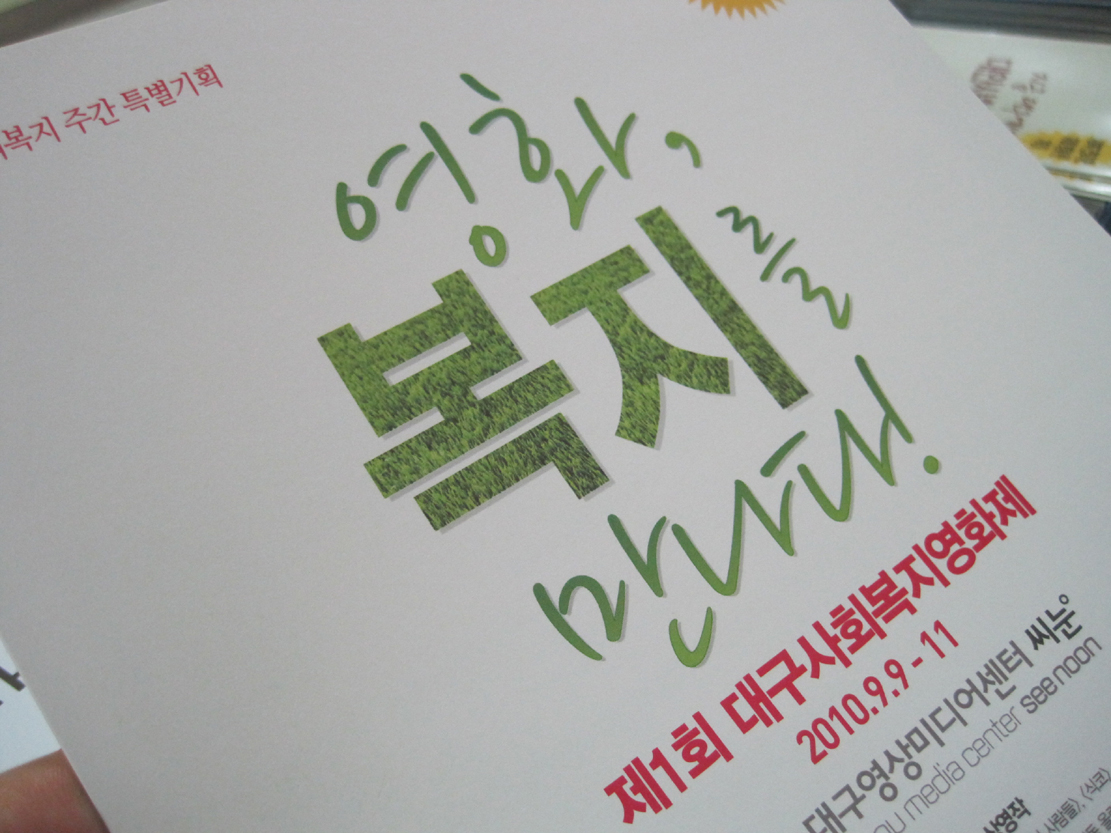 복지 주간 특별기획
영화,
복지를
만나다!
제1회 대구사회복지영화제
2010.9.9 - 11
대구영상미디어센터 씨눈
media center see noon